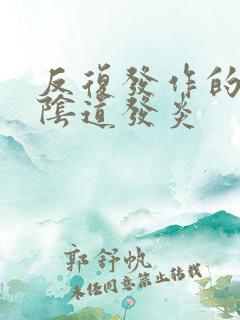 反復發作的
陰道發炎
郭舒帆
未任同意禁止轉載